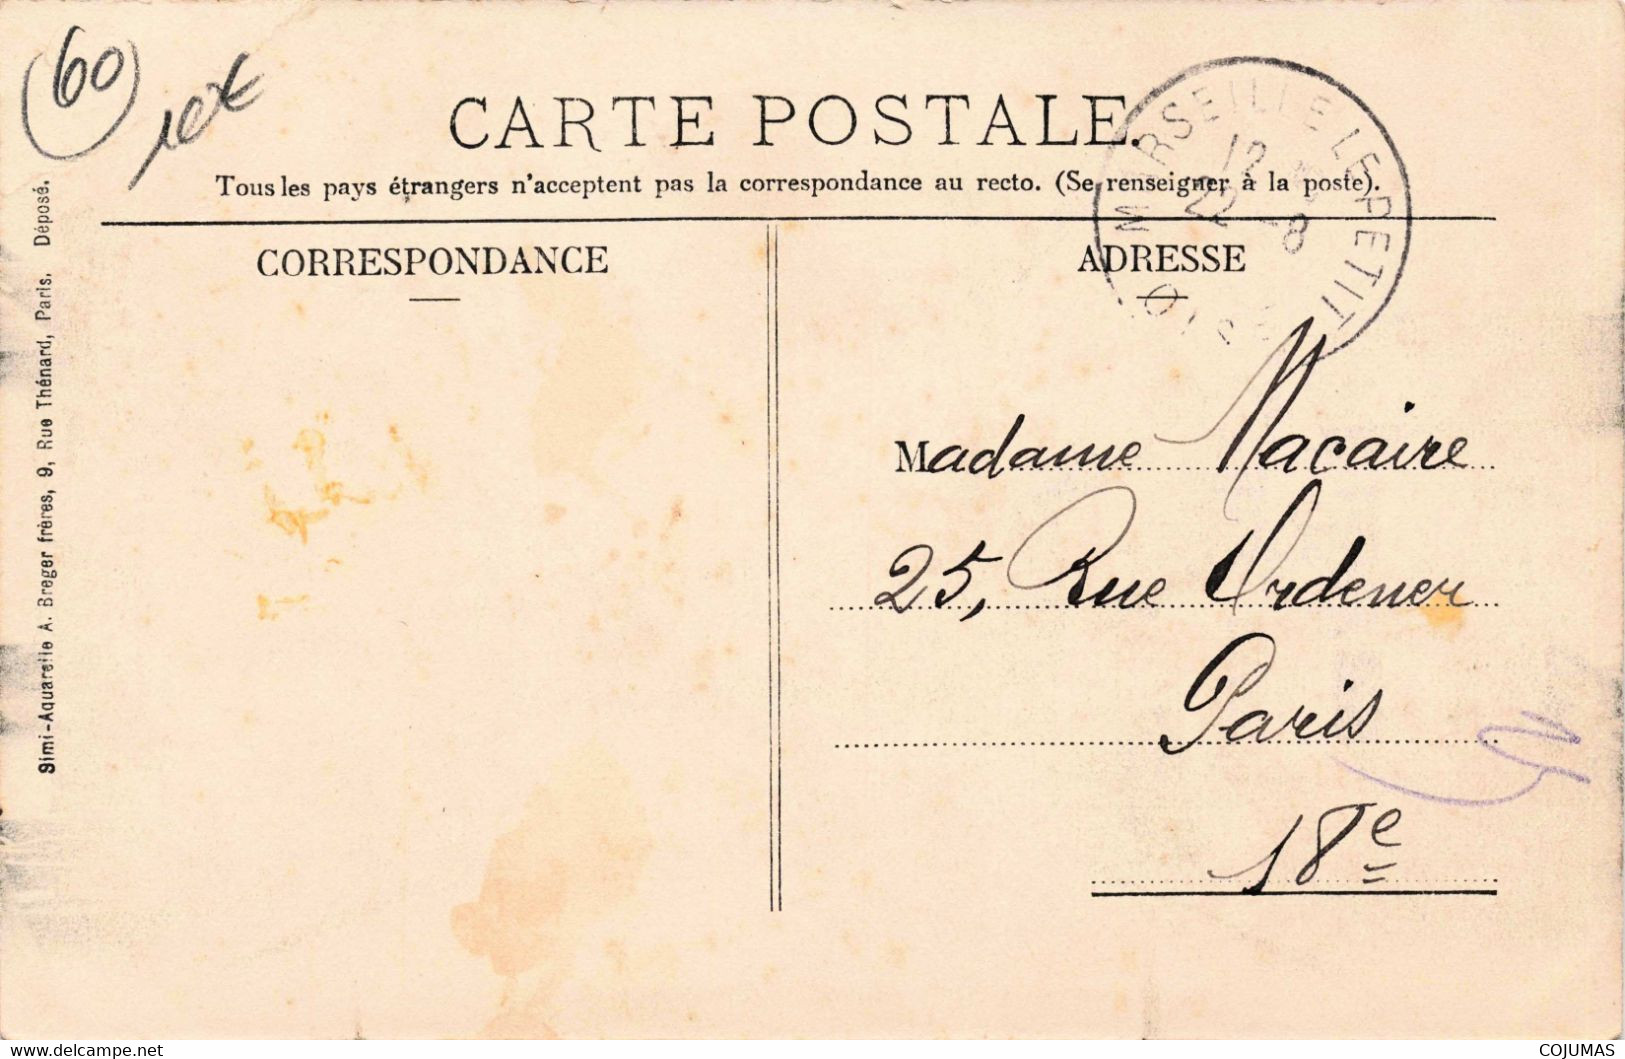 60
10€
CARTE POSTALE.
Tous les pays étrangers n'acceptent pas la correspondance au recto. (Se renseigner à la poste).
CORRESPONDANCE
ADRESSE
MARSEILLE LE PETIT
OISE
12
22 - 8
Madame Macaire
25, Rue Ordener
Paris
18e
Simi-Aquarelle A. Breger frères, 9, Rue Thénard, Paris. Déposé.
www.delcampe.net
COJUMAS